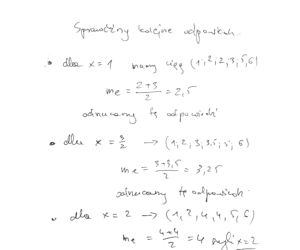 Sprawdźmy kolejne odpowiedzi.
• dla x = 1 mamy ciąg (1, 2, 2, 3, 5, 6)
me = 2+3/2 = 2,5
odrzucamy tę odpowiedź
• dla x = 3/2 → (1, 2, 3, 3,5, 5, 6)
me = 3+3,5/2 = 3,25
odrzucamy tę odpowiedź.
• dla x = 2 → (1, 2, 4, 4, 5, 6)
me = 4+4/2 = 4 czyli x = 2